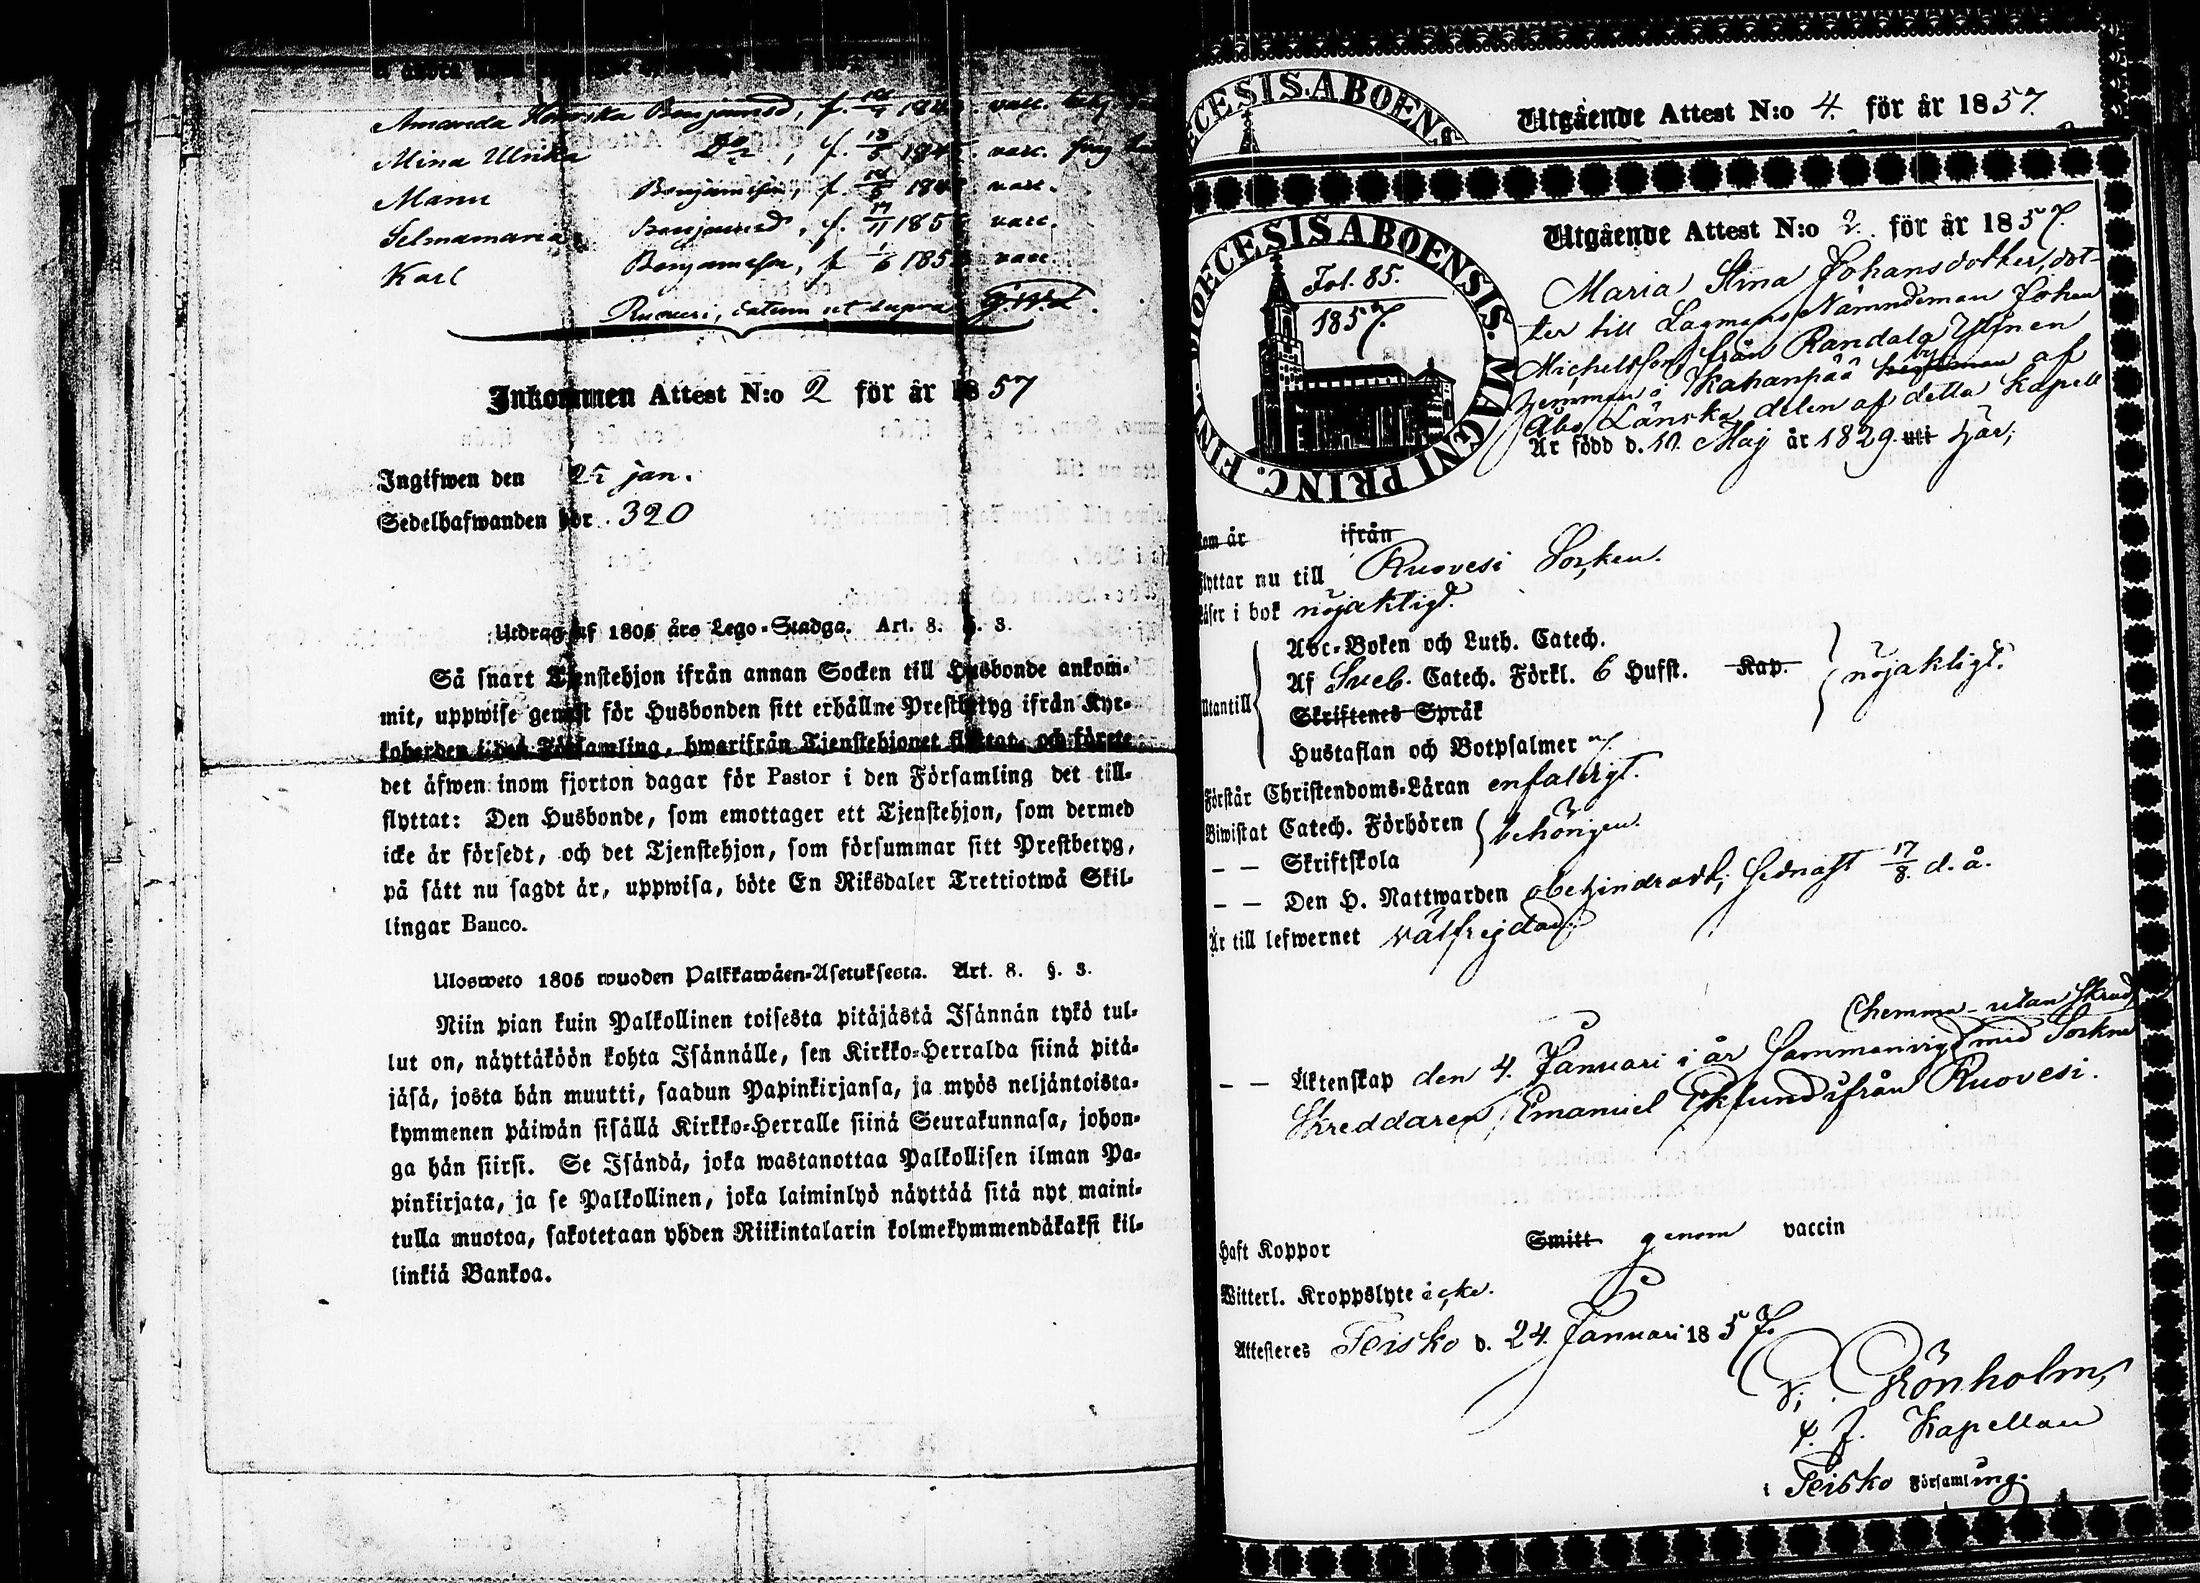 Amanda Benjaminsd, f. 184 vacc.
Mina Ulrika Do, f. 13/5 184 vacc.
Manu Benjaminson, f. 184 vacc.
Selmamaria Benjaminsd, f. 17/11 185 vacc.
Karl Benjaminson, f. 1/6 185 vacc.
Ruovesi, datum ut supra
Inkommen Attest N:o 2 för år 1857
Ingifwen den 25 jan.
Sedelhafwanden hör. 320
Utdrag af 1805 års Lego-Stadga. Art. 8. §. 3.
Så snart Tjenstehjon ifrån annan Socken till Husbonde ankom-
mit, uppwise genast för Husbonden sitt erhållne Prestbetyg ifrån Kyr-
koherden i den Församling, hwarifrån Tjenstehjonet flyttat, och förete
det äfwen inom fjorton dagar för Pastor i den Församling det till-
flyttat: Den Husbonde, som emottager ett Tjenstehjon, som dermed
icke är försedt, och det Tjenstehjon, som försummar sitt Prestbetyg,
på sätt nu sagdt är, uppwisa, böte En Riksdaler Trettiotwå Skil-
lingar Banco.
Ulosweto 1805 wuoden Palkkawäen-Asetuksesta. Art. 8. §. 3.
Niin pian kuin Palkollinen toisesta pitäjästä Isännän tykö tul-
lut on, näyttäköön kohta Isännälle, sen Kirkko-Herralda siinä pitä-
jäsä, josta hän muutti, saadun Papinkirjansa, ja myös neljäntoista-
kymmenen päiwän sisällä Kirkko-Herralle siinä Seurakunnasa, johon-
ga hän siirsi. Se Isändä, joka wastanottaa Palkollisen ilman Pa-
pinkirjata, ja se Palkollinen, joka laiminlyö näyttää sitä nyt maini-
tulla muotoa, sakotetaan yhden Riikintalarin kolmekymmendäkaksi kil-
linkiä Bankoa.
DIOECESIS ABOENSIS
Utgående Attest N:o 4. för år 1857.
DIOECESIS ABOENSIS. MAGNI PRINC. FIN
Fol. 85.
1857.
Utgående Attest N:o 2. för år 1857.
Maria Stina Johansdotter, dot-
ter till Lagmans Nämndeman Johan
Michelsson från Randala Ylinen
hemman i Kahanpää by af
Åbo Länska delen af detta Kapell
Är född d. 10. Maj år 1829. uti här;
kom år ifrån
flyttar nu till Ruovesi Socken.
Läser i bok nöjaktigt.
Utantill
Abc-Boken och Luth. Catech.
Af Sveb. Catech. Förkl. 6 Hufst. Kap. nöjaktigt.
Skriftenes Språk
Hustaflan och Botpsalmer
Förstår Christendoms-Läran enfaldigt.
Biwistat Catech. Förhören behörigen.
– – Skriftskola
– – Den H. Nattwarden obehindradt, sednast 17/8. d. å.
Är till lefwernet välfrejdad;
(hemma- utan skrud)
– – Äktenskap den 4. Januari i år Sammanvigd med Sockne
Skreddaren, Emanuel Eklund ifrån Ruovesi.
Haft Koppor Smitt genom vaccin
Witterl. Kroppslyte icke.
Attesteres Teisko d. 24. Januari 1857.
V. Grönholm,
t. f. Kapellan
i Teisko Församling.